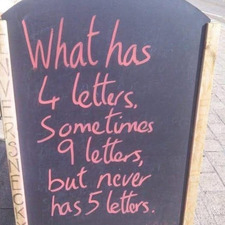 What has
4 letters,
Sometimes
9 letters,
but never
has 5 letters.